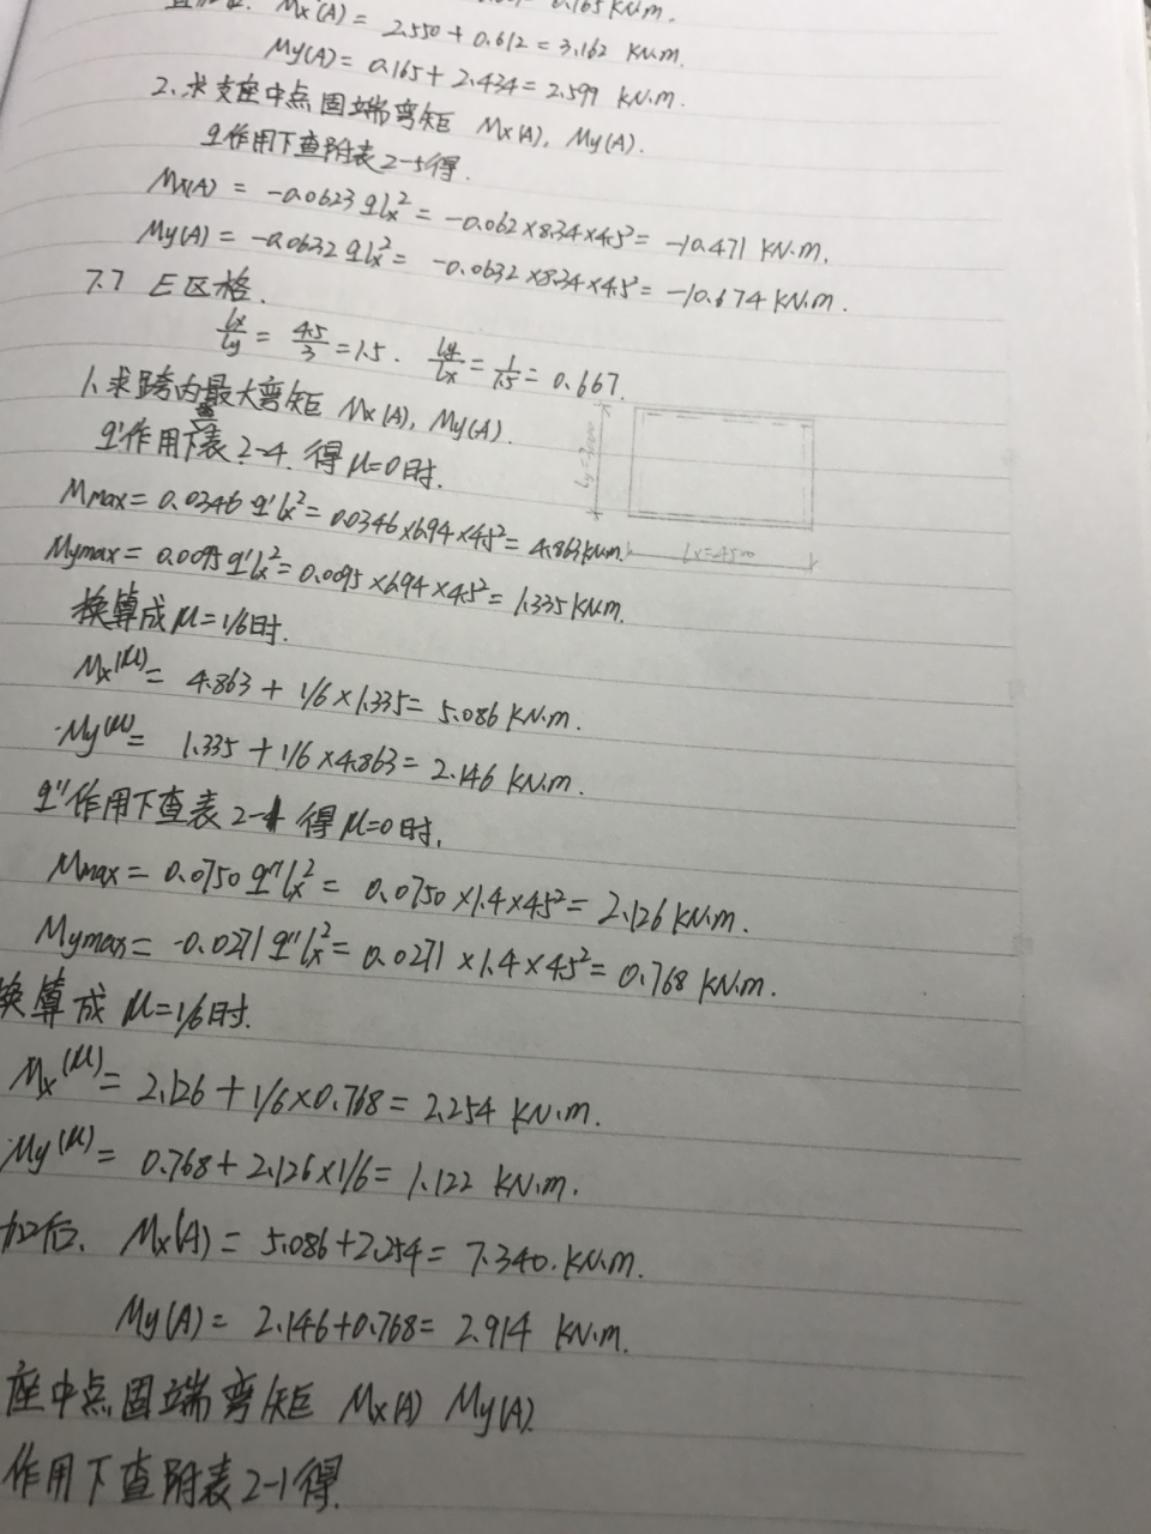 Mx(A) = 2.550 + 0.612 = 3.162 KN.m.
My(A) = 0.165 + 2.434 = 2.599 KN.m.
2、求支座中点固端弯矩 Mx(A), My(A).
q作用下查附表2-5得.
Mx(A) = -0.0623 qlx² = -0.062×8.34×4.5² = -10.471 KN.m.
My(A) = -0.0632 qlx² = -0.0632×8.34×4.5² = -10.674 KN.m.
7.7 E区格.
lx/ly = 4.5/3 = 1.5. ly/lx = 1/1.5 = 0.667.
1、求跨内最大弯矩 Mx(A), My(A).
q'作用下查表2-4. 得μ=0时.
Mmax = 0.0346 q'lx² = 0.0346×6.94×4.5² = 4.863 KN.m.
Mymax = 0.0095 q'lx² = 0.0095×6.94×4.5² = 1.335 KN.m.
ly=3000
lx=4500
换算成μ=1/6时.
Mx(μ) = 4.863 + 1/6×1.335 = 5.086 KN.m.
My(μ) = 1.335 + 1/6×4.863 = 2.146 KN.m.
q''作用下查表2-1 得μ=0时.
Mmax = 0.0750 q''lx² = 0.0750×1.4×4.5² = 2.126 KN.m.
Mymax = 0.0271 q''lx² = 0.0271×1.4×4.5² = 0.768 KN.m.
换算成μ=1/6时.
Mx(μ) = 2.126 + 1/6×0.768 = 2.254 KN.m.
My(μ) = 0.768 + 2.126×1/6 = 1.122 KN.m.
加后. Mx(A) = 5.086+2.254 = 7.340. KN.m.
My(A) = 2.146+0.768 = 2.914 KN.m.
座中点固端弯矩 Mx(A) My(A).
作用下查附表2-1得.